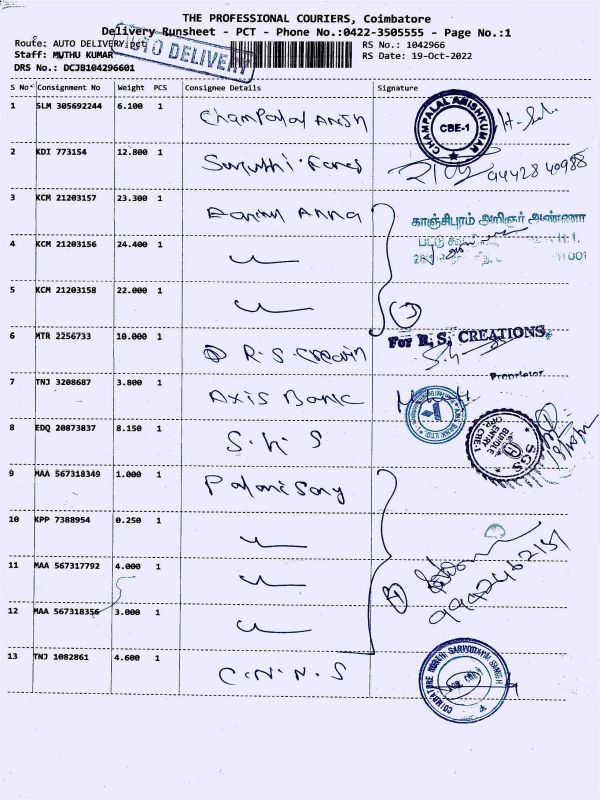 THE PROFESSIONAL COURIERS, Coimbatore
Delivery Runsheet - PCT - Phone No.:0422-3505555 - Page No.:1
Route: AUTO DELIVERY.pct
AUTO DELIVERY
RS No.: 1042966
Staff: MUTHU KUMAR
RS Date: 19-Oct-2022
DRS No.: DCJB104296601
S No Consignment No Weight PCS Consignee Details Signature
1 SLM 305692244 6.100 1 Champalal
CHAMPALAL AMISHKUMAR CBE-1
2 KDI 773154 12.800 1 94428 40988
3 KCM 21203157 23.300 1 Anna
காஞ்சிபுரம் அறிஞர் அண்ணா
பட்டு
4 KCM 21203156 24.400 1
5 KCM 21203158 22.000 1
3
6 MTR 2256733 10.000 1 R.S. Creation
For R. S. CREATIONS,
Proprietor
7 TNJ 3208687 3.800 1 Axis Bank
8 EDQ 20873837 8.150 1 S.K.S
SGS
ENTRY
9 MAA 567318349 1.000 1
10 KPP 7388954 0.250 1
11 MAA 567317792 4.000 1
4
9942462151
12 MAA 567318356 3.000 1
13 TNJ 1082861 4.600 1 C.N.N.S
COIMBATORE NORTH SARVODHAYA SANGH